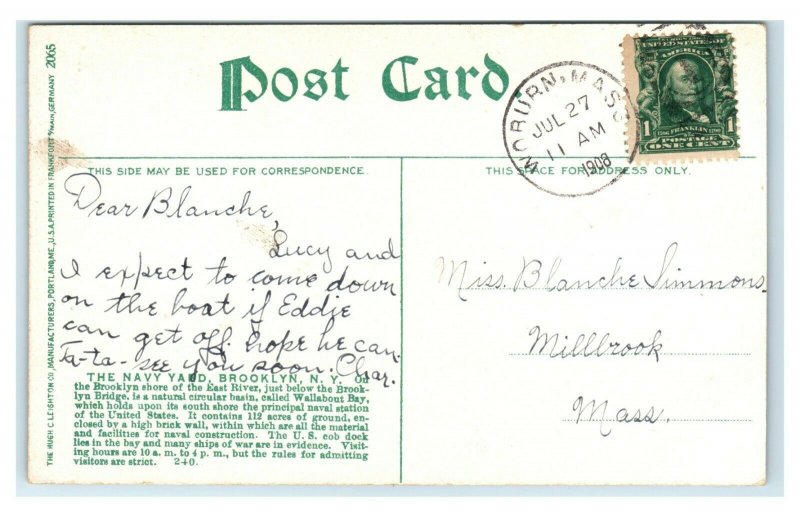 Post Card.
WOBURN, MASS
JUL 27
11 AM
1908
UNITED STATES OF
AMERICA
1 FRANKLIN 1
POSTAGE
ONE CENT
THIS SIDE MAY BE USED FOR CORRESPONDENCE.
THIS SPACE FOR ADDRESS ONLY.
THE HUGH C. LEIGHTON CO., MANUFACTURERS, PORTLAND, ME., U.S.A. PRINTED IN FRANKFORT o/MAIN, GERMANY 2065
Dear Blanche,
Lucy and
I expect to come down
on the boat if Eddie
can get off. hope he can.
Ta-ta- see you soon. Char.
THE NAVY YARD, BROOKLYN, N. Y. On
the Brooklyn shore of the East River, just below the Brook-
lyn Bridge, is a natural circular basin, called Wallabout Bay,
which holds upon its south shore the principal naval station
of the United States. It contains 112 acres of ground, en-
closed by a high brick wall, within which are all the material
and facilities for naval construction. The U. S. cob dock
lies in the bay and many ships of war are in evidence. Visit-
ing hours are 10 a. m. to 4 p. m., but the rules for admitting
visitors are strict. 2+0.
Miss. Blanche Simmons.
Millbrook
Mass.